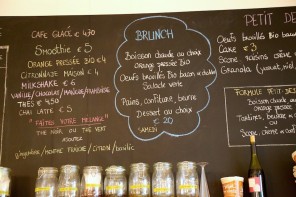 CAFE GLACÉ € 4,50
Smoothie € 5
ORANGE PRESSÉE BIO € 4
CITRONNADE MAISON € 4
MILKSHAKE € 6
VANILLE/CHOCOLAT/MANGUE/FRAMBOISE
THÉS € 4,50
CHAI LATTE € 5
"FAITES VOTRE MÉLANGE"
THÉ NOIR OU THÉ VERT
gingembre/menthe/mangue/citron/basilic
BRUNCH
Boisson chaude au choix
Orange pressée Bio
Oeufs brouillés Bio bacon
Salade verte
Pains, confiture, beurre
Dessert au choix
€ 20
SAMEDI
PETIT DE
Oeufs brouillés Bio
Cake € 3
Scone
Granola
FORMULE PETIT-DE
Boisson chaude au
ou
Orange pressée
Tartines, beurre
ou
Scone, crème